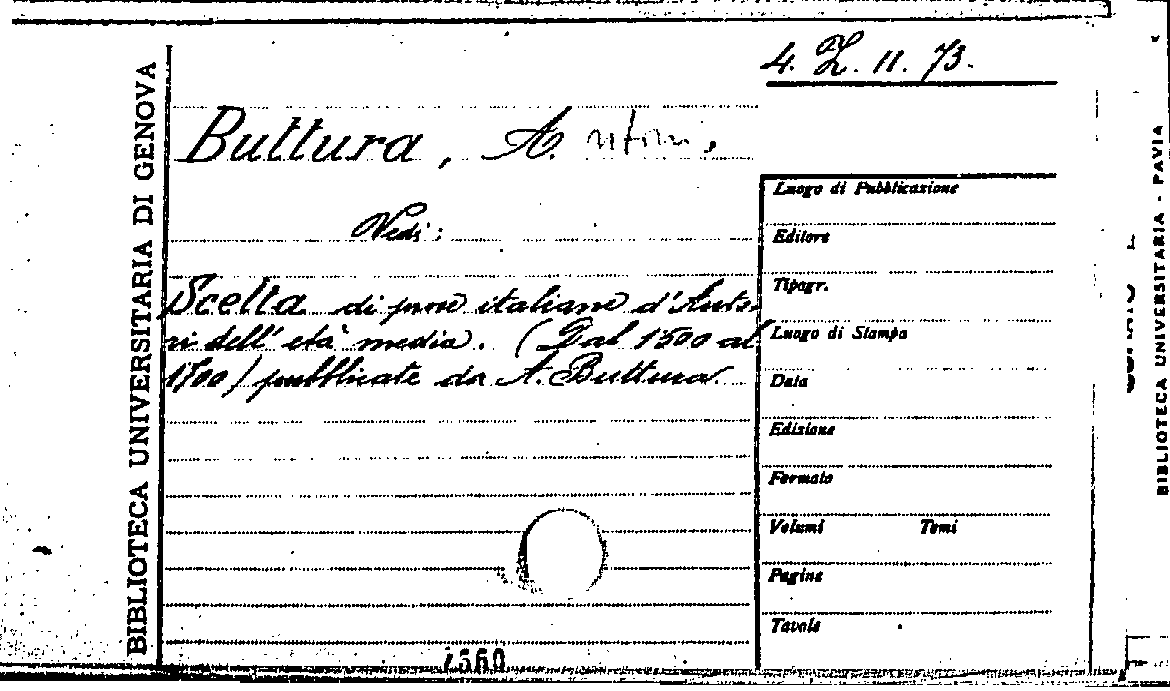 4. Z. 11. 73.
BIBLIOTECA UNIVERSITARIA DI GENOVA
Buttura, A.
Vedi:
Scelta di prose italiane d'Auto-
ri dell'età media. (Dal 1500 al
1700) pubblicate da A. Buttura
Luogo di Pubblicazione
Editore
Tipogr.
Luogo di Stampa
Data
Edizione
Formato
Volumi Tomi
Pagine
Tavole
BIBLIOTECA UNIVERSITARIA - PAVIA